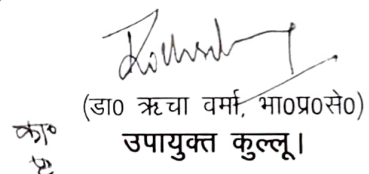 (डा० ऋचा वर्मा, भा०प्र०से०)
उपायुक्त कुल्लू।
का०